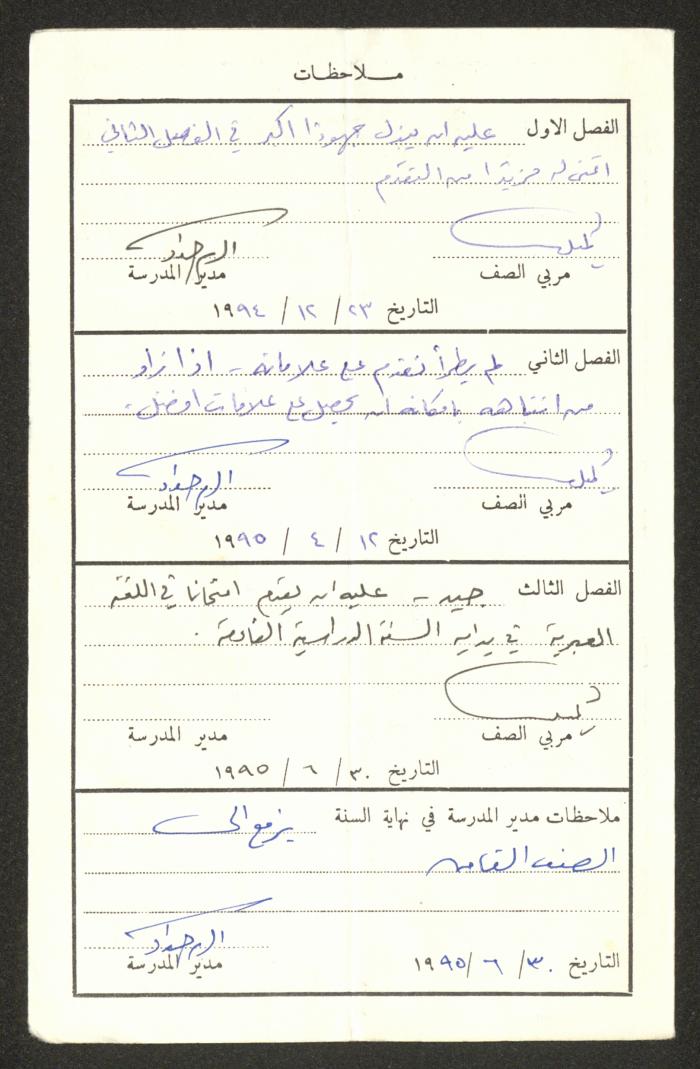 ملاحظات
الفصل الاول عليه ان يبذل جهودا اكبر في الفصل الثاني
اتمنى له مزيدا من التقدم
مربي الصف مدير المدرسة
التاريخ ٢٣ / ١٢ / ١٩٩٤
الفصل الثاني لم يطرأ تقدم على علاماته - اذا زاد
من انتباهه بامكانه ان يحصل على علامات افضل.
مربي الصف مدير المدرسة
التاريخ ١٢ / ٤ / ١٩٩٥
الفصل الثالث جيد - عليه ان يقدم امتحانا في اللغة
العبرية في بداية السنة الدراسية القادمة.
مربي الصف مدير المدرسة
التاريخ ٣٠ / ٦ / ١٩٩٥
ملاحظات مدير المدرسة في نهاية السنة يرفع الى
الصف
مدير المدرسة
التاريخ ٣٠ / ٦ / ١٩٩٥